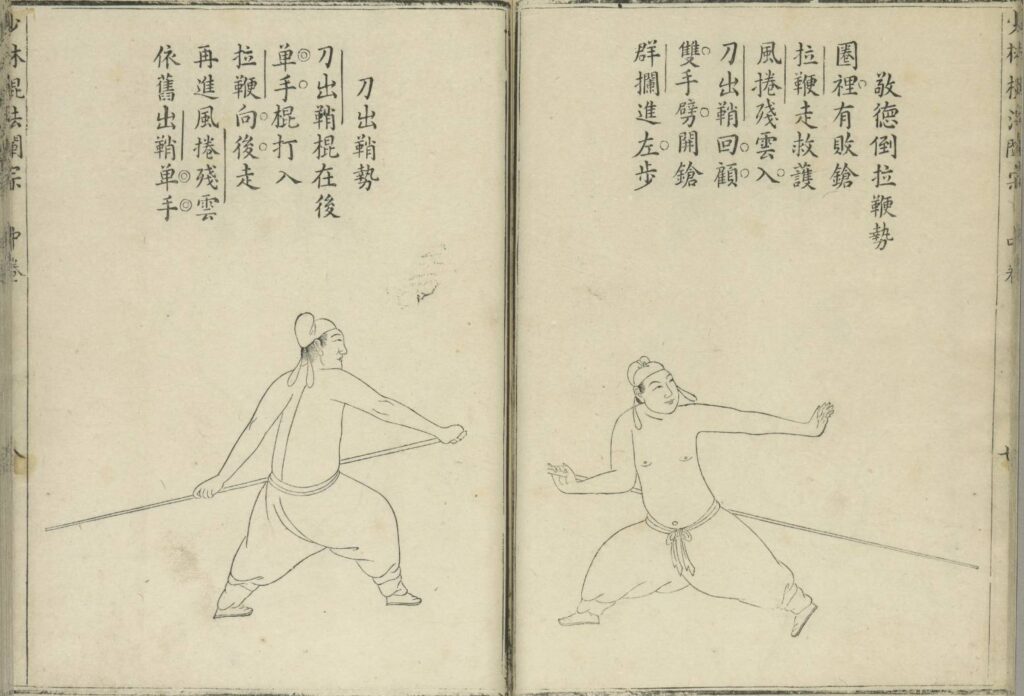 敬德倒拉鞭勢
圈裡有敗鎗
拉鞭走救護
風捲殘雲入
刀出鞘回顧
雙手劈開鎗
群攔進左步
刀出鞘勢
刀出鞘棍在後
单手棍打入
拉鞭向後走
再進風捲殘雲
依舊出鞘单手
少林棍法闡宗